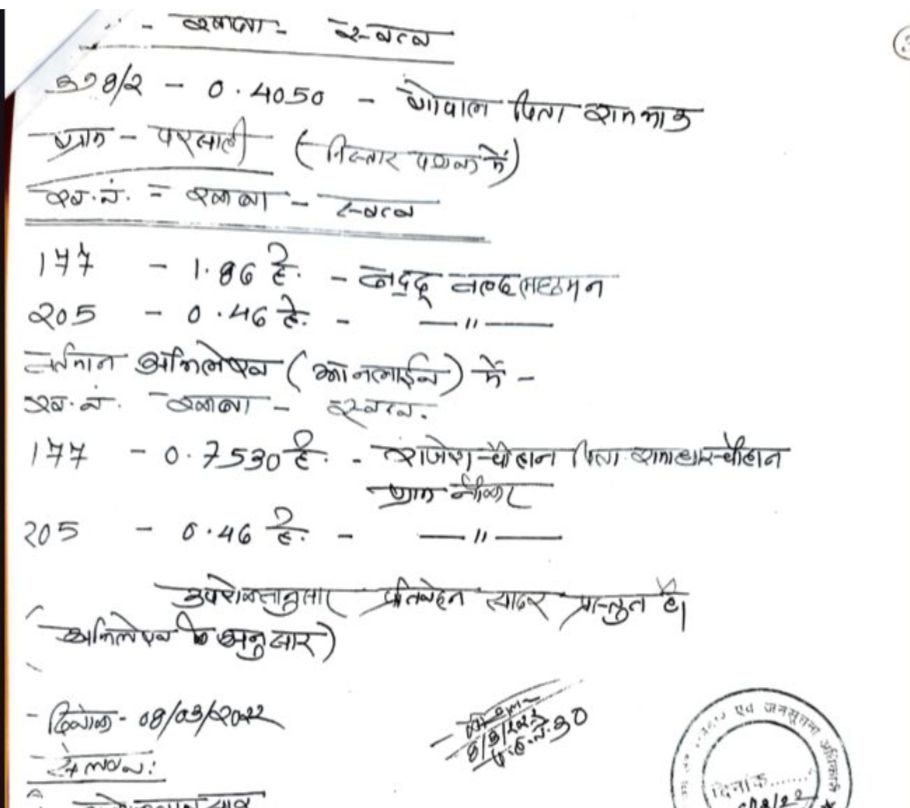 - रकबा - स्वत्व
378/2 - 0.4050 - गोपाल पिता रामभाऊ
ग्राम - परसाली (निस्तार पत्रक में)
ख.नं. - रकबा - स्वत्व
177 - 1.86 हे. - वल्द लछमन
205 - 0.46 हे. - —〃—
वर्तमान अभिलेख (ऑनलाईन) में -
ख.नं. रकबा - स्वत्व.
177 - 0.7530 हे. - राजेश चौहान पिता रामाधार चौहान
ग्राम
205 - 0.46 हे. - —〃—
उपरोक्तानुसार प्रतिवेदन सादर प्रस्तुत है।
अभिलेख के अनुसार)
- दिनांक - 08/03/2022
8/3/2022
प.ह.नं. 30
संलग्न:
एवं जनसूचना अधिकारी
दिनांक